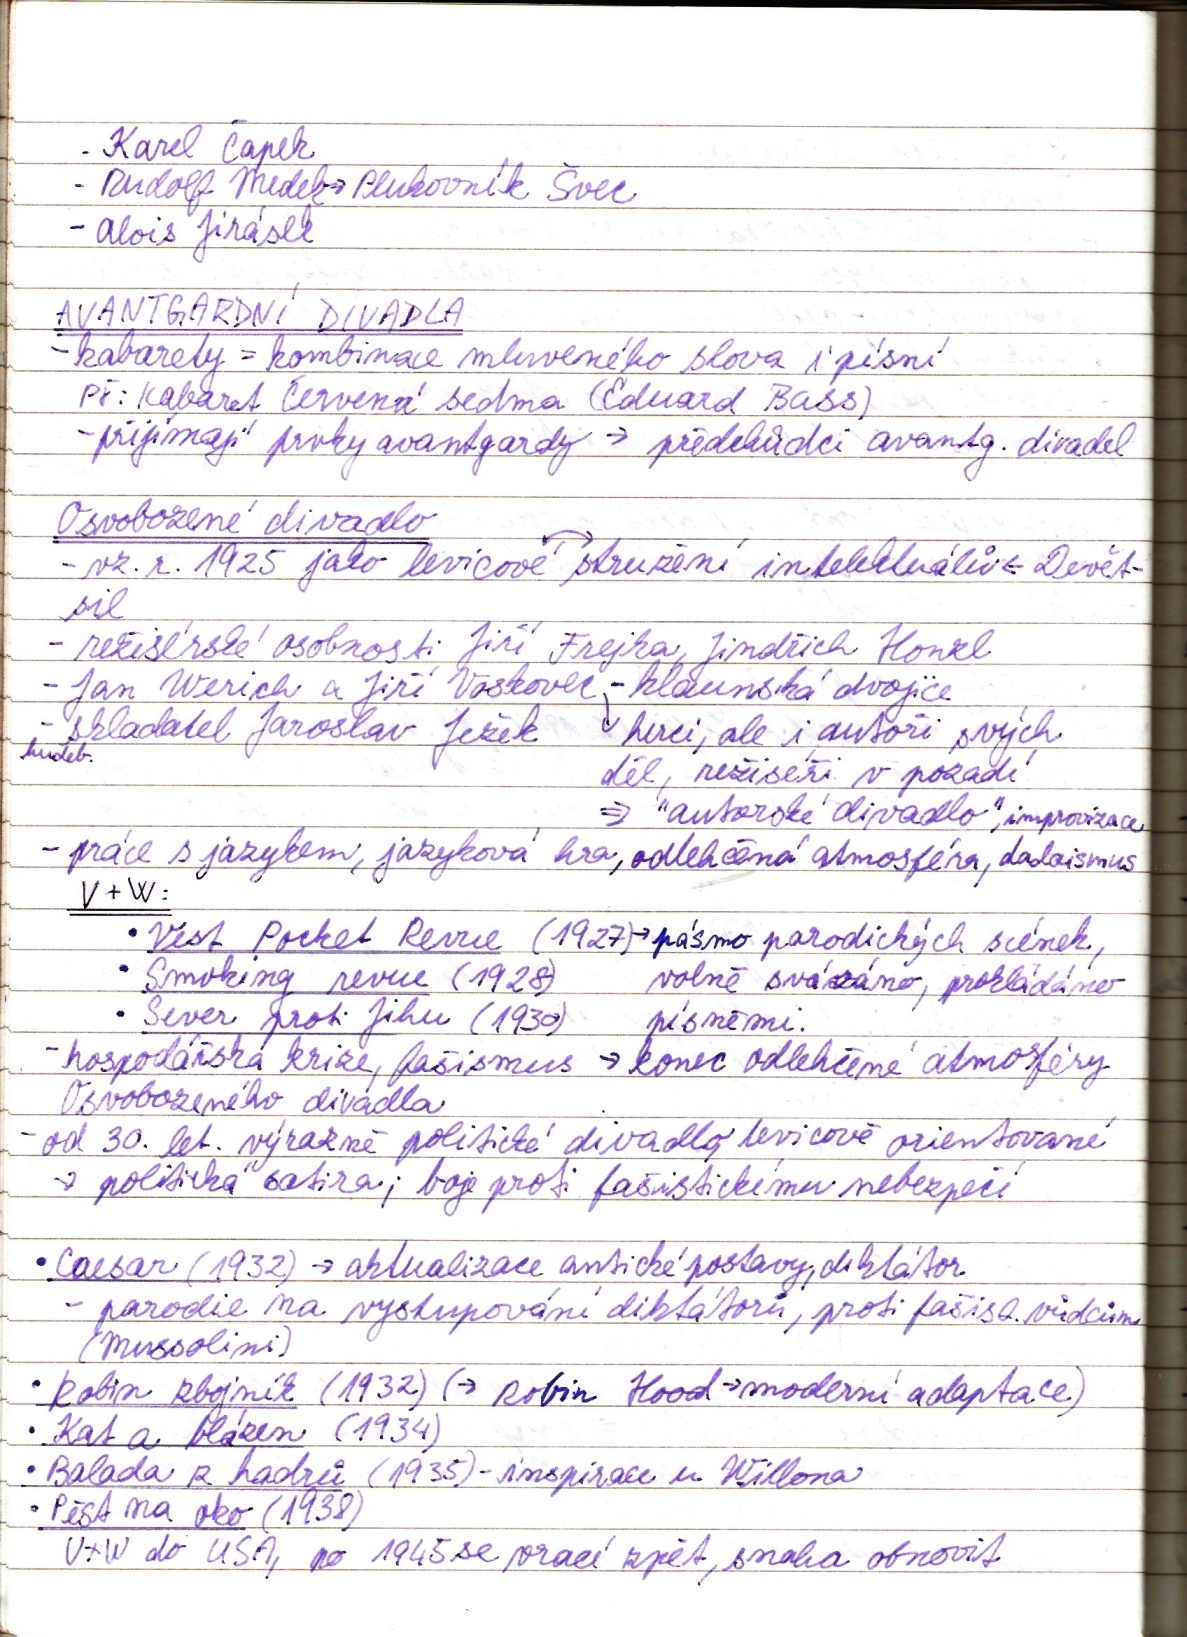 - Karel Čapek
- Rudolf Medek → Plukovník Švec
- Alois Jirásek
AVANTGARDNÍ DIVADLA
- kabarety = kombinace mluveného slova i písní
Př: Kabaret Červená sedma (Eduard Bass)
- přijímají prvky avantgardy → předchůdci avantg. divadel
Osvobozené divadlo
- vz. r. 1925 jako levicové sdružení intelektuálů ← Devět-
sil
- režisérské osobnosti Jiří Frejka, Jindřich Honzl
- Jan Werich a Jiří Voskovec - klaunská dvojice
- skladatel Jaroslav Ježek ↳ herci, ale i autoři svých
hudeb.
děl, režiséři v pozadí
⇒ "autorské divadlo", improvizace
- práce s jazykem, jazyková hra, odlehčená atmosféra, dadaismus
V+W:
• Vest Pocket Revue (1927) → pásmo parodických scének,
• Smoking revue (1928) volně svázáno, prokládáno
• Sever proti Jihu (1930) písněmi.
- hospodářská krize, fašismus → konec odlehčené atmosféry
Osvobozeného divadla
- od 30. let. výrazně politické divadlo, levicově orientované
→ politická satira; boje proti fašistickému nebezpečí
• Caesar (1932) → aktualizace antické postavy, diktátor
- parodie na vystupování diktátorů, proti fašist. vůdcům
(Mussolini)
• Robin zbojník (1932) (→ Robin Hood → moderní adaptace)
• Kat a blázen (1934)
• Balada z hadrů (1935) - inspirace u Willona
• Pěst na oko (1938)
V+W do USA, po 1945 se vrací zpět, snaha obnovit